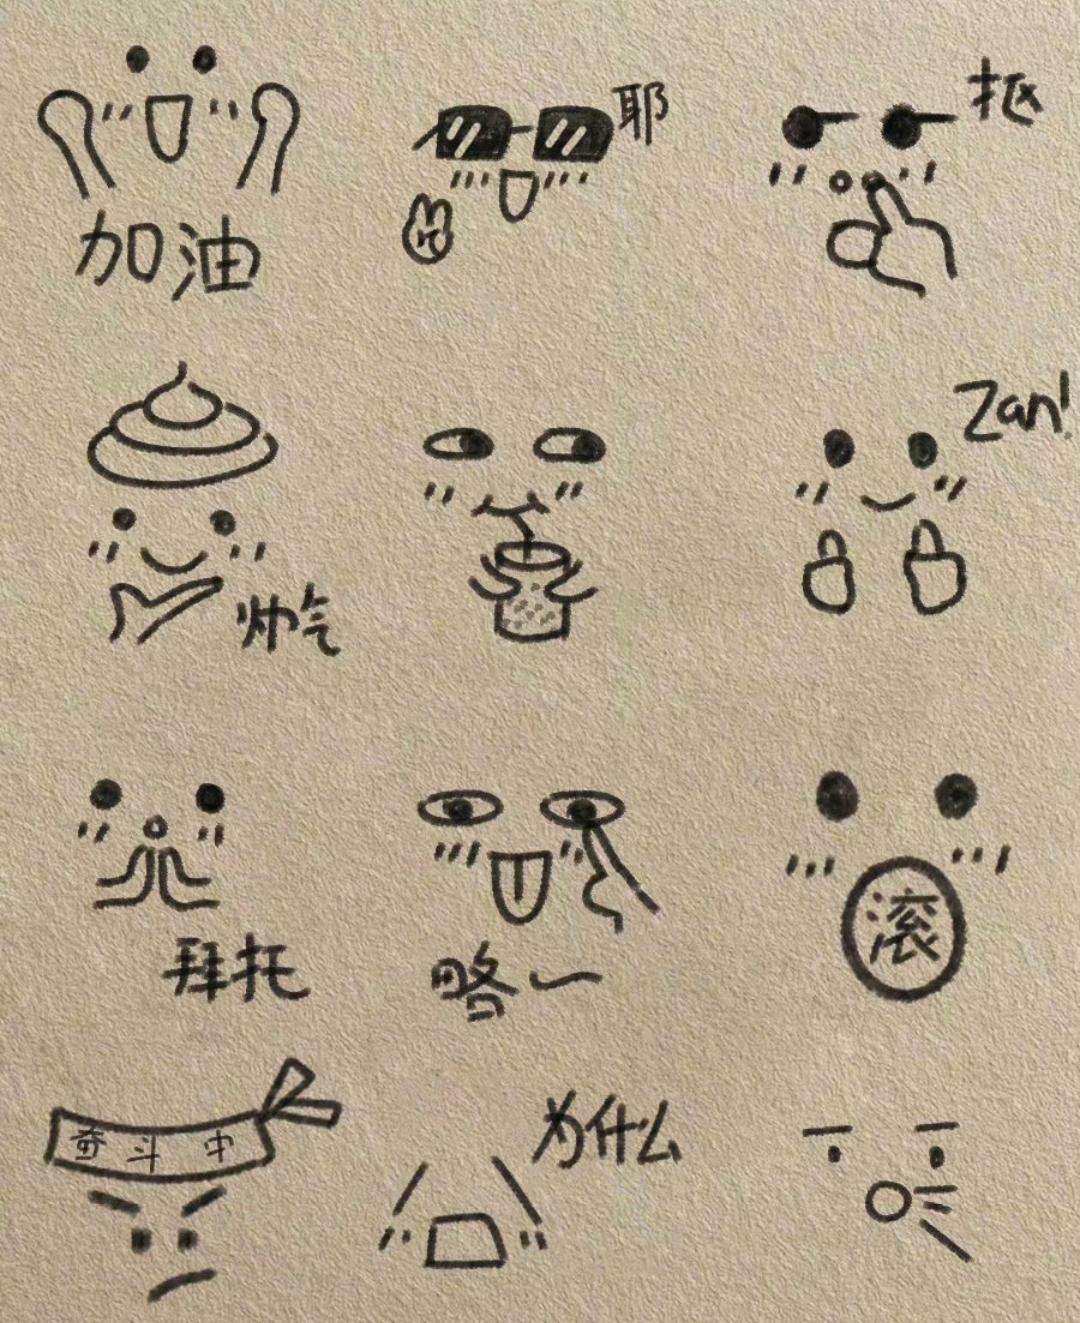 加油
耶
抠
Zan!
帅气
拜托
略～
滚
奋斗中
为什么